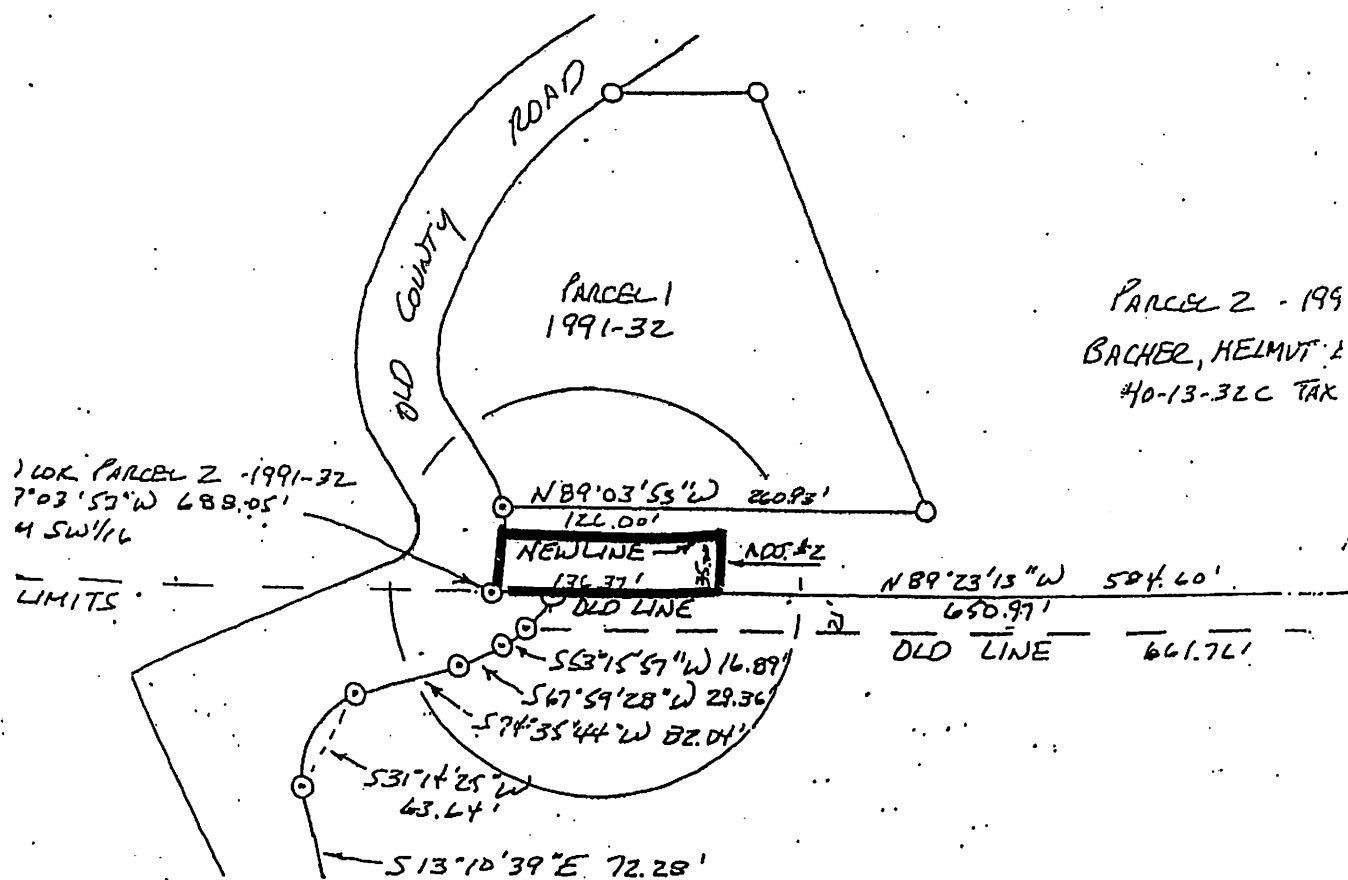 OLD COUNTY ROAD
PARCEL 1
1991-32
PARCEL 2 - 199
BACHER, HELMUT
40-13-32C TAX
PARCEL 2 - 1991-32
7°03'53"W 688.05'
SW 1/16
LIMITS
N89°03'53"W 260.93'
126.00'
NEW LINE
35.2
ADJ. #2
136.37'
OLD LINE
N89°23'13"W 584.60'
650.97'
OLD LINE 661.76'
S53°15'57"W 16.89'
S67°59'28"W 29.36'
S74°35'44"W 82.04'
S31°14'25"W
63.64'
S13°10'39"E 72.28'